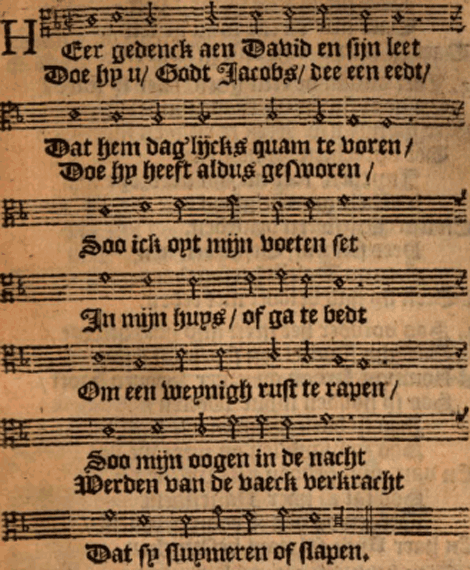 HEer gedenck aen David en sijn leet
Doe hy u/ Godt Jacobs/ dee een eedt/
Dat hem dag'lijcks quam te voren/
Doe hy heeft aldus gesworen/
Soo ick opt mijn voeten set
In mijn huys/ of ga te bedt
Om een weynigh rust te rapen/
Soo mijn oogen in de nacht
Werden van de vaeck verkracht
Dat sy sluymeren of slapen.